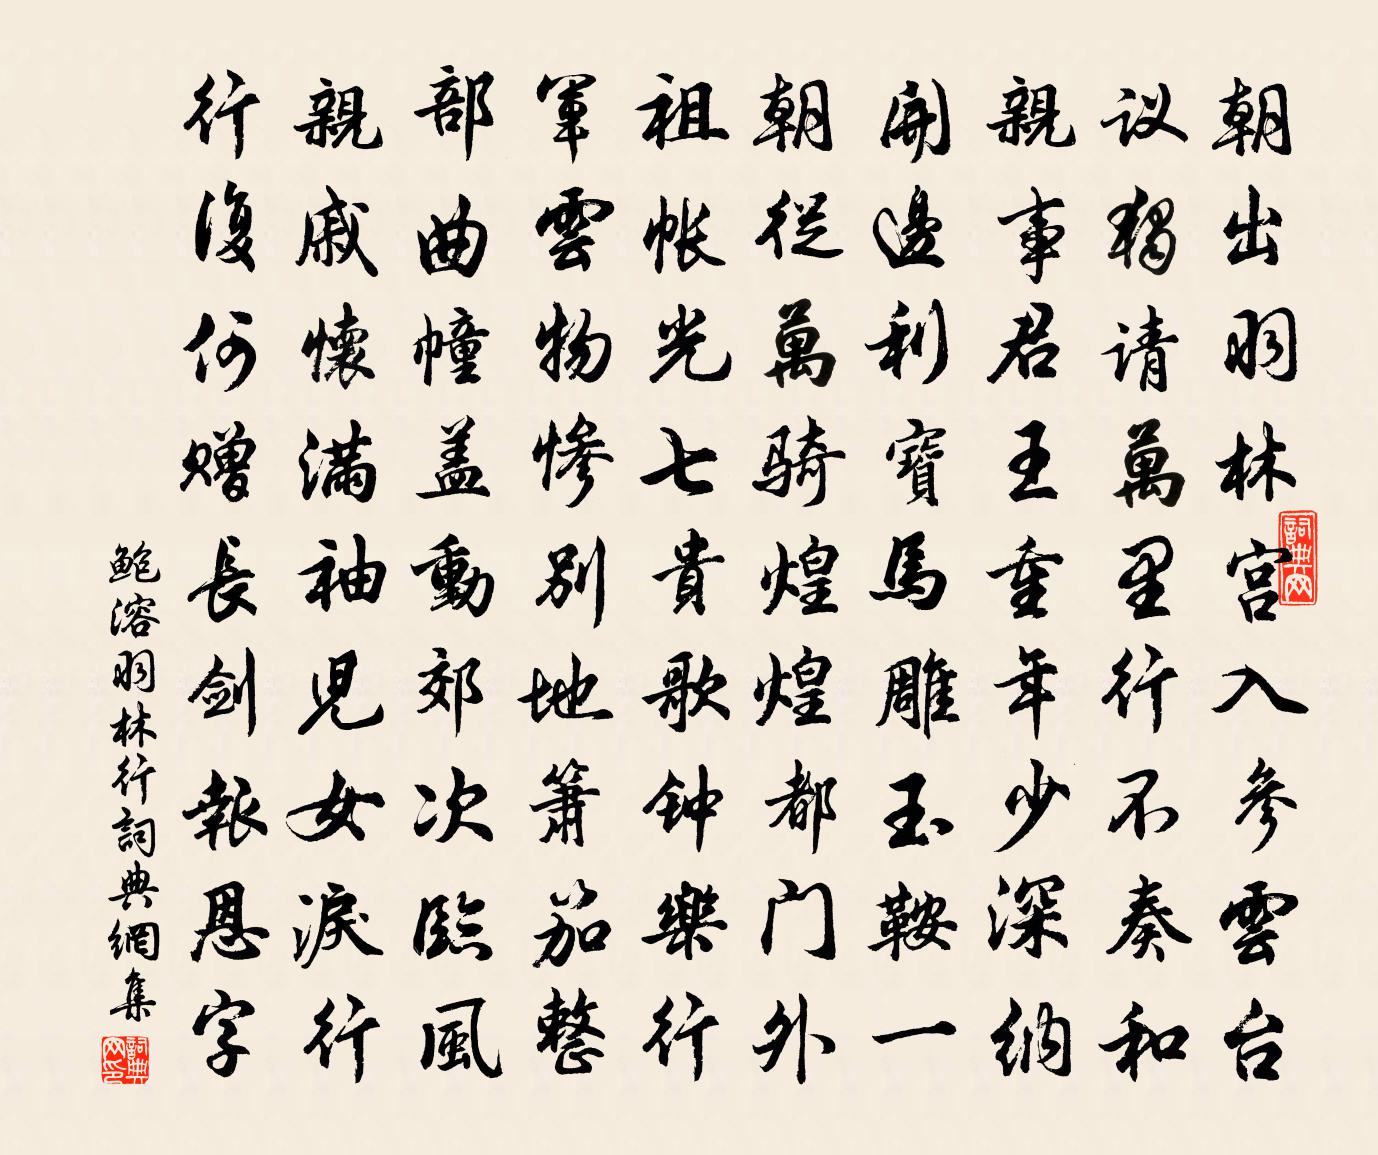 朝出羽林宫入參雲台
议獨请萬里行不奏和
親事君王重年少深纳
開邊利寶馬雕玉鞍一
朝從萬騎煌煌都门外
祖帐光七貴歌钟樂行
軍雲物惨别地箫笳整
部曲幢盖動郊次臨風
親戚懷满袖兒女淚行
行復何赠長劍報恩字
鲍溶羽林行詞典網集
詞典网
詞典网印